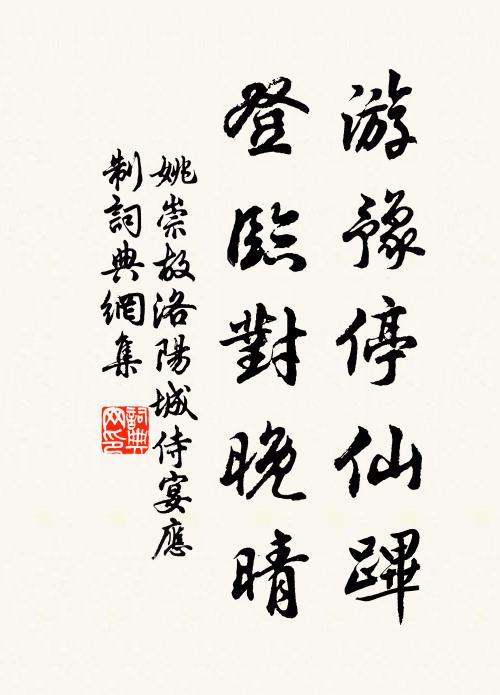 游豫停仙蹕
登臨對晚晴
姚崇故洛陽城侍宴應
制詞典網集
詞典
网印